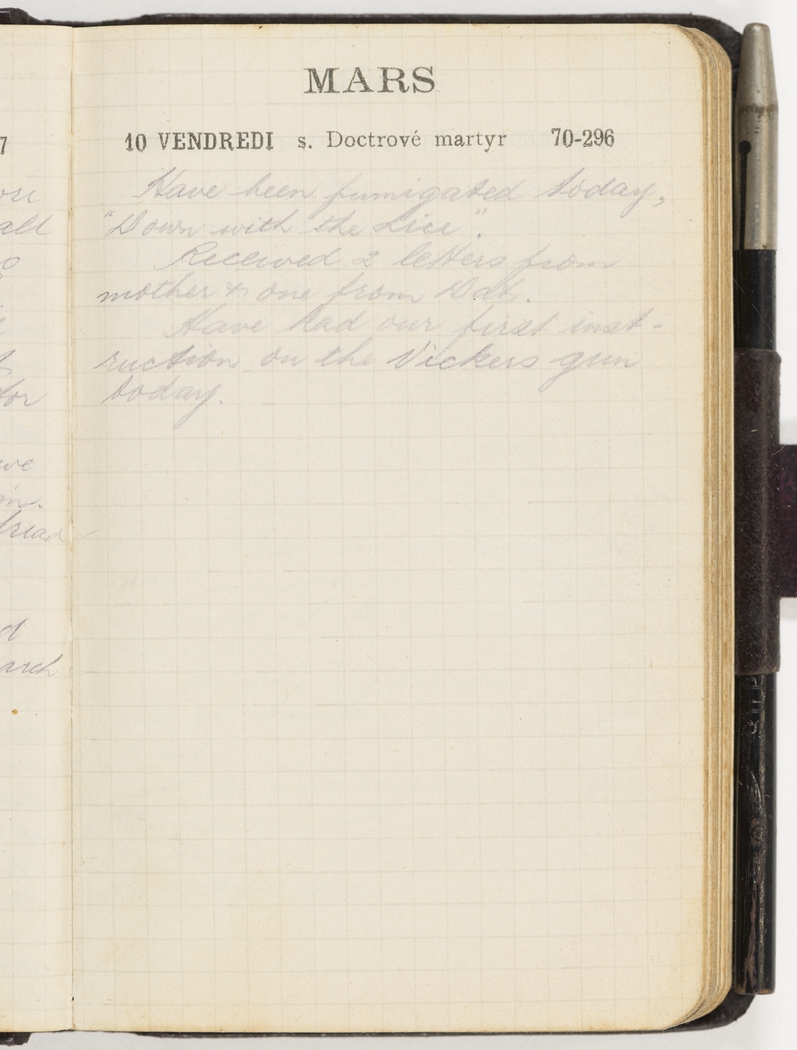 MARS
10 VENDREDI s. Doctrové martyr 70-296
Have been fumigated today,
"Down with the Lice".
Received 2 letters from
mother & one from Dad.
Have had our first inst-
ruction on the Vickers gun
today.
7
all
for
ve
in.
d
arch